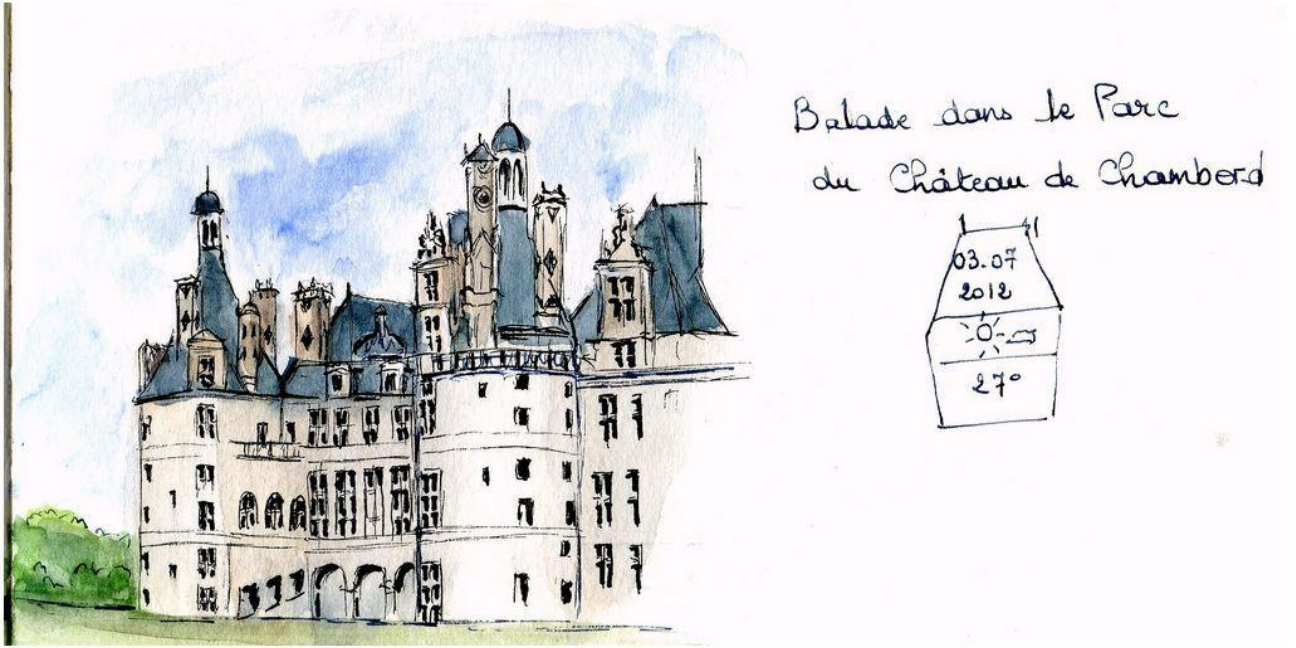 Balade dans le Parc
du Château de Chambord
03.07
2012
27°